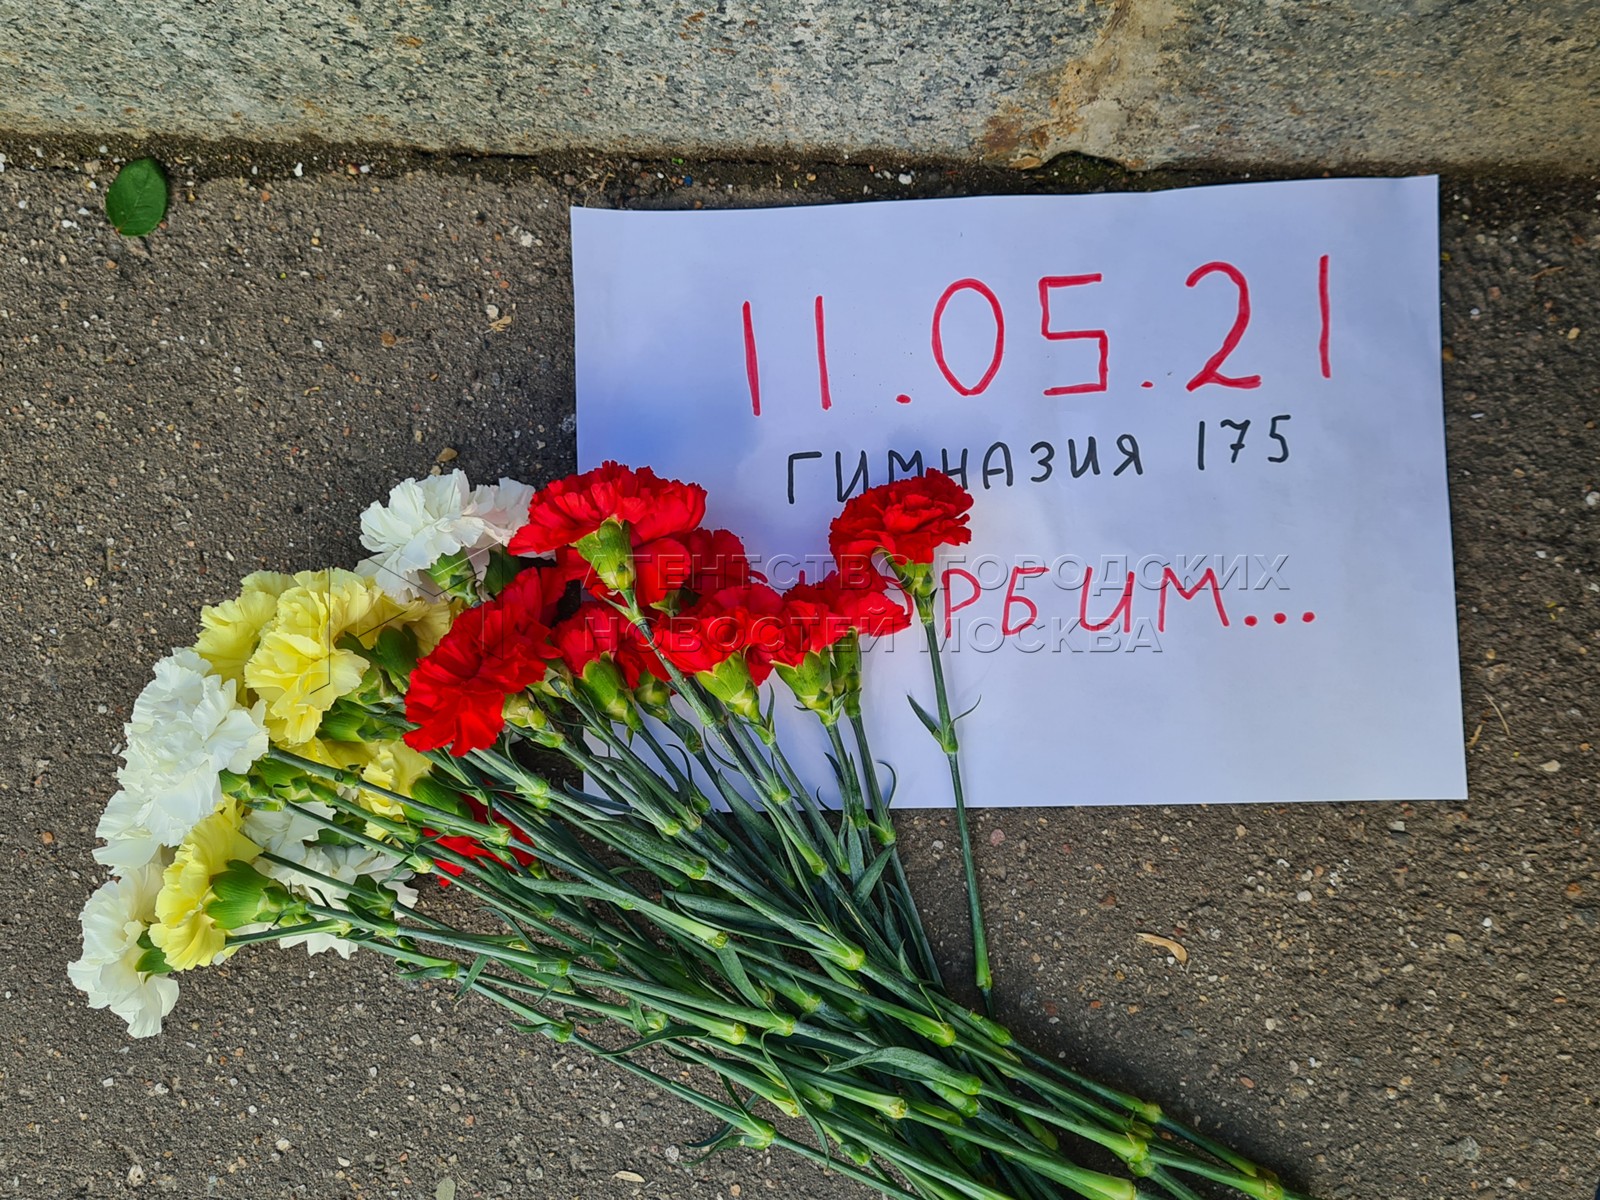 11.05.21
ГИМНАЗИЯ 175
СКОРБИМ...
АГЕНТСТВО ГОРОДСКИХ
НОВОСТЕЙ МОСКВА